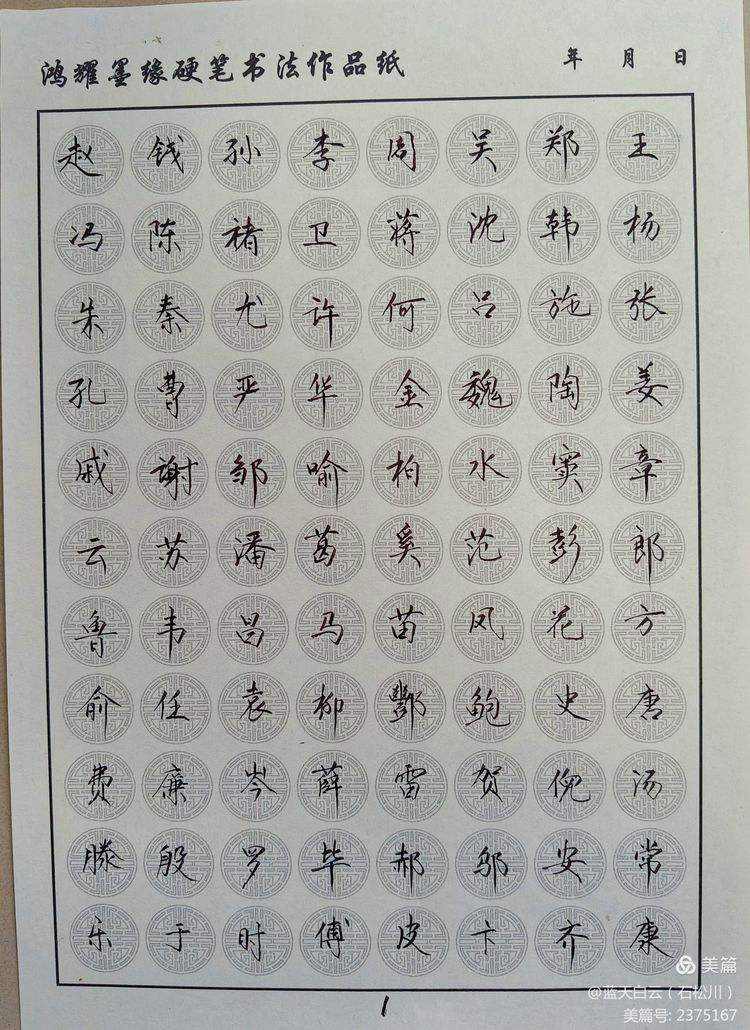 鸿耀墨缘硬笔书法作品纸 年 月 日
赵钱孙李周吴郑王
冯陈褚卫蒋沈韩杨
朱秦尤许何吕施张
孔曹严华金魏陶姜
戚谢邹喻柏水窦章
云苏潘葛奚范彭郎
鲁韦昌马苗凤花方
俞任袁柳酆鲍史唐
费廉岑薛雷贺倪汤
滕殷罗毕郝邬安常
乐于时傅皮卞齐康
1
美篇
@蓝天白云（石松川）
美篇号: 2375167